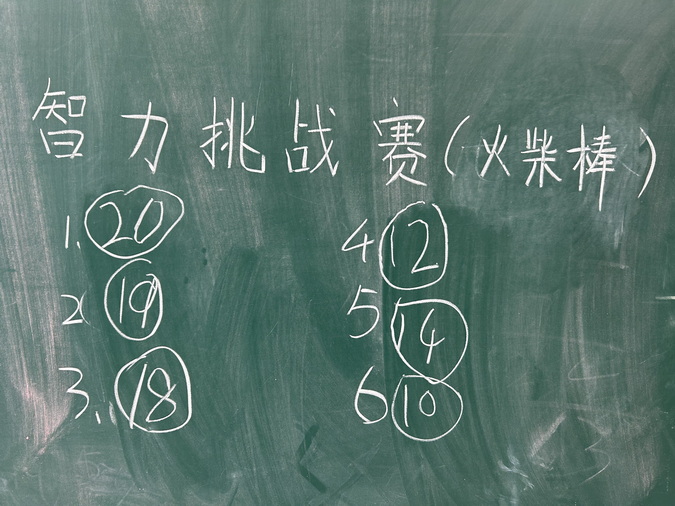 智力挑战赛(火柴棒)
1. 20
2 19
3. 18
4 12
5 14
6 10